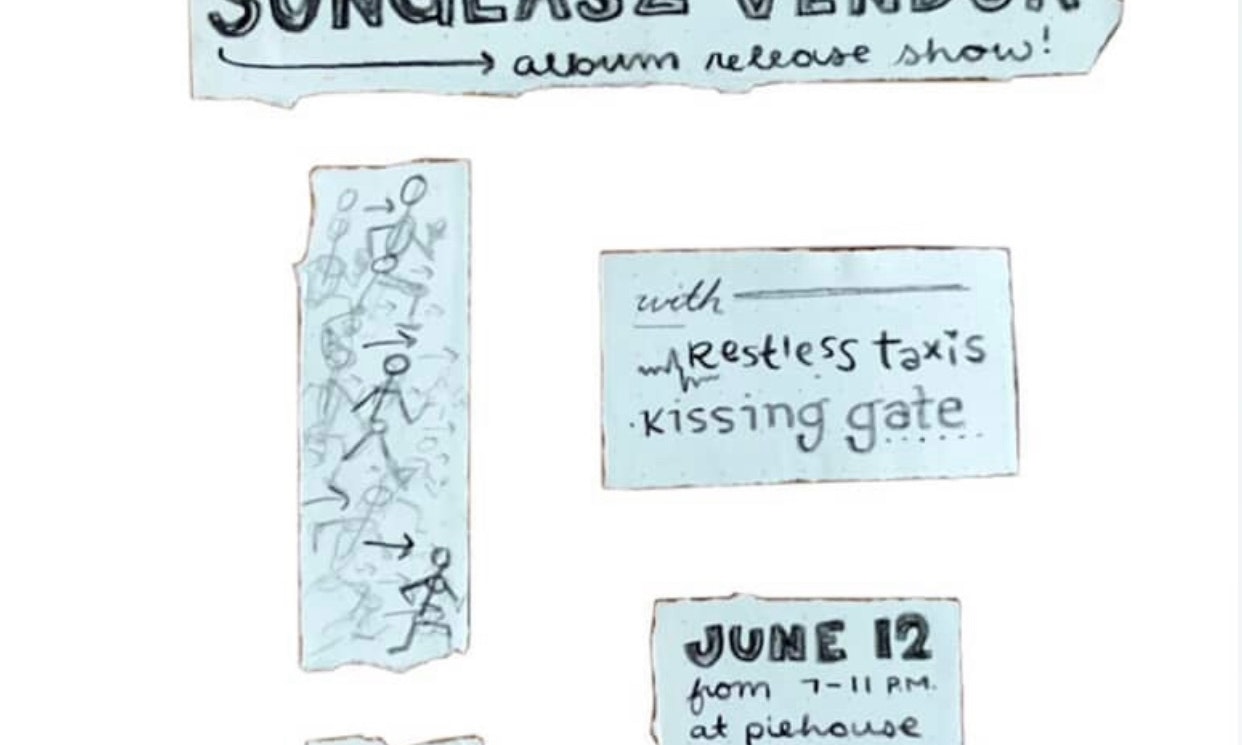 SUNGLASZ VENDOR
album release show!
with
Restless taxis
kissing gate
JUNE 12
from 7-11 P.M.
at piehouse